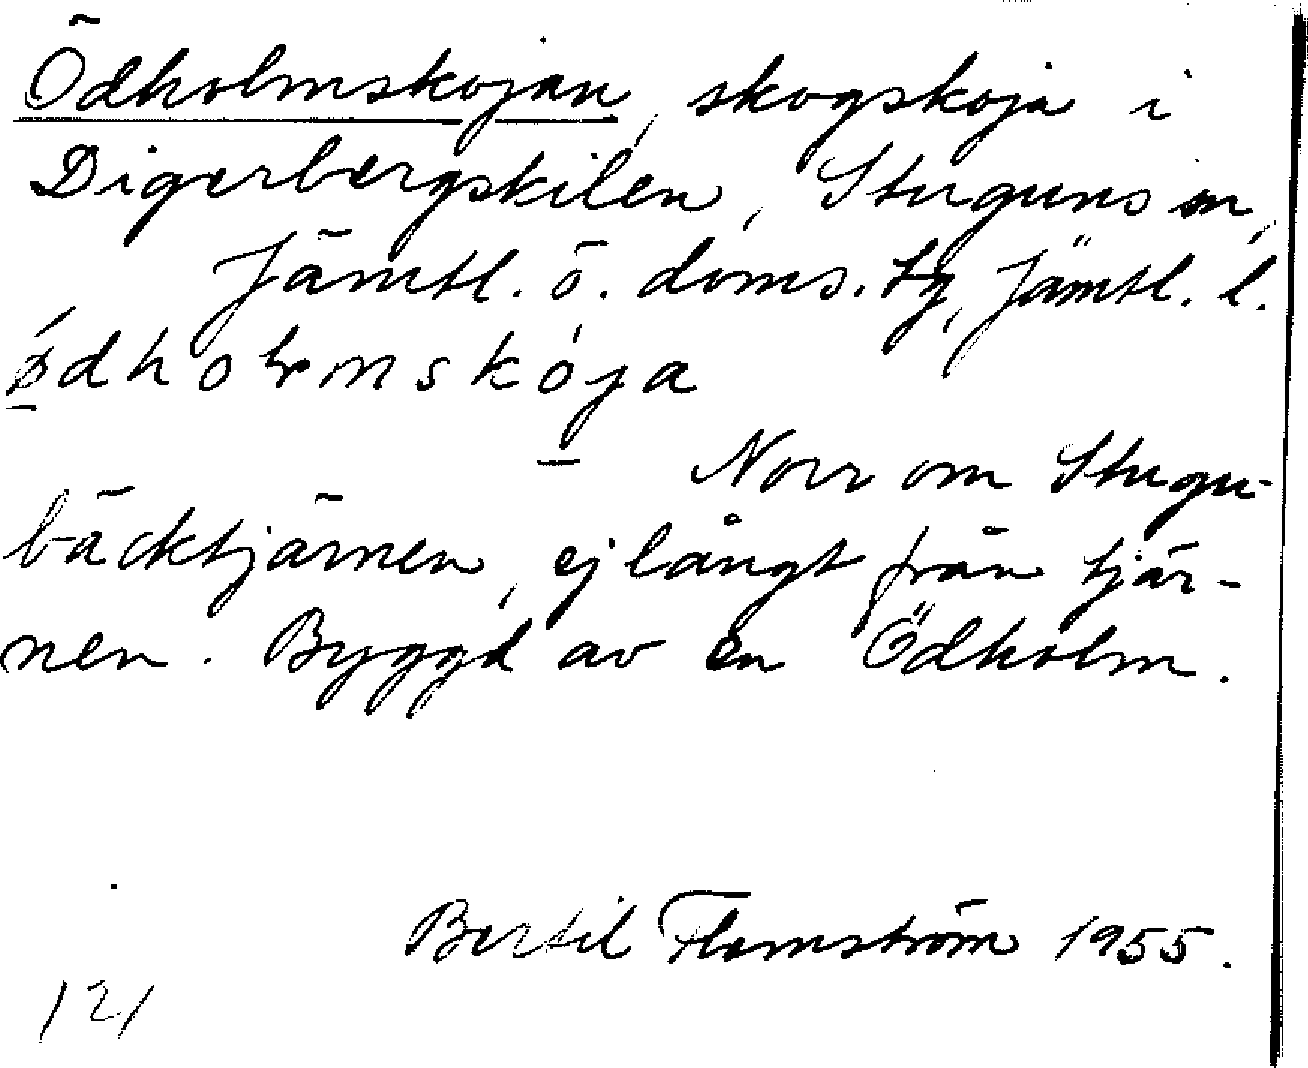 Ödholmskojan, skogskoja i
Digerbergskilen, Stuguns sn,
Jämtl. ö. doms. tg, Jämtl. l.
ǿdholmskója
Norr om Stugu-
bäcktjärnen, ej långt från tjär-
nen. Byggd av en Ödholm.
Bertil Flemström 1955.
121